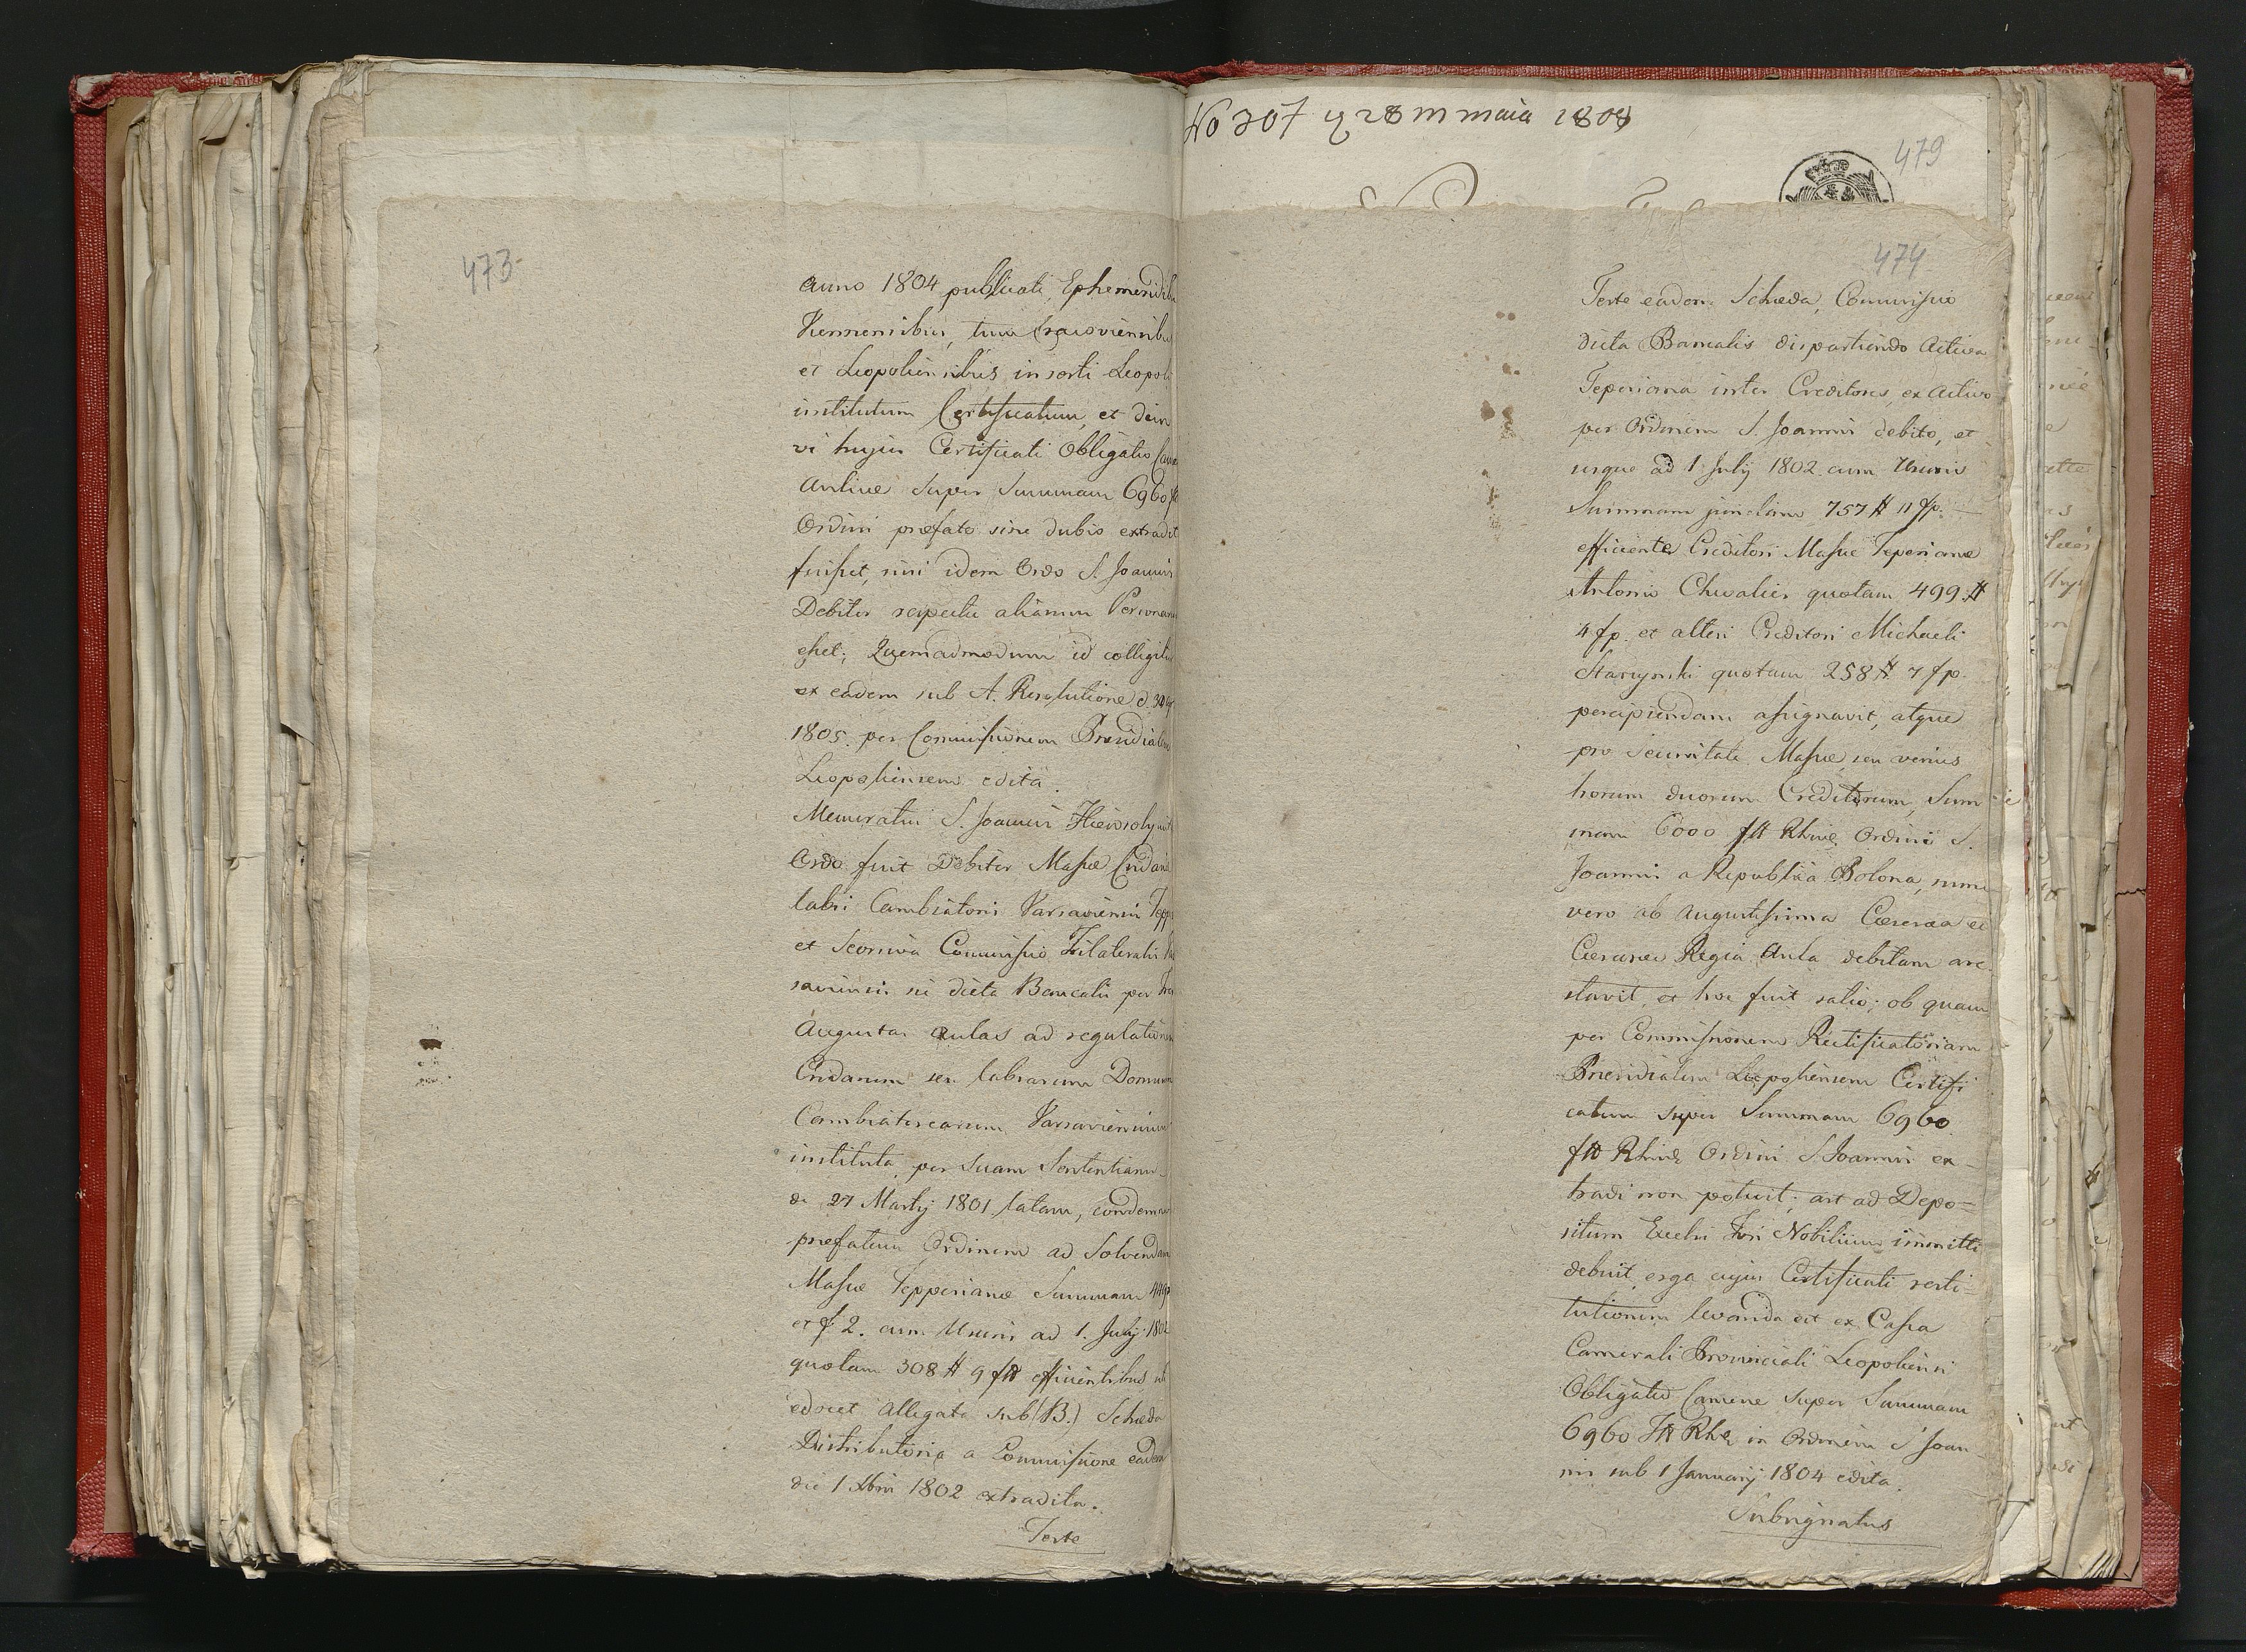 473
anno 1804 publicati, Ephemeridibu
Viennensibus, tum Cracoviensibu
et Leopoliensibus inserti Leopoli
institutum Certificatum, et dein
vi hujus Certificati Obligatio Came
Aulicæ super Summam 6960 f
Ordini præfato sine dubio extradit
fuisset, nisi idem Ordo S. Joannis
Debitor respectu aliarum Personarum
esset; Quemadmodum id colligitur
ex eadem sub A. Resolutione d.
1805. per Commissionem Præsidialem
Leopoliensem edita.
Memoratus S. Joannis Hierosolymit
Ordo fuit Debitor Massæ Cridari
labri Cambiatoris Varsaviensis Tepp
et Seorsiva Commissio Trilateralis
saviensis sic dicta Bancalis per
Augustas Aulas ad regulationem
Cridarum seu labrarum Domuum
Cambiatorearum Varsaviensium
instituta, per Suam Sententiam
de 27 Martij 1801 latam, condemna
præfatum Ordinem ad Solvendam
Massæ Tepperianæ Summam 449
et f 2. cum Usuris ad 1. Julij 1802
quotam 308 # 9 f# efficientibus, uti
edocet allegata sub (B.) Scheda
Distributoria a Commissione eadem
die 1 Xbris 1802 extradita.
Teste
No 307 28 m maia 1808
479
474
Teste eadem Scheda, Commissio
dicta Bancalis dispartiendo Activa
Teperiana inter Creditores, ex Activo
per Ordinem S. Joannis debito, et
usque ad 1 Julij 1802 cum Usuris
Summam junctim 757 # 11 fp. —
efficiente Creditori Massæ Teperianæ
Antonio Chevalier quotam 499 #
4 fp. et alteri Creditori Michaeli
Starzynski quotam 258 # 7 fp.
percipiendam assignavit, atque
pro Securitate Massæ, seu verius
horum duorum Creditorum, Sum-
mam 6000 f# Rhnes Ordini S.
Joannis a Republica Polona, nunc
vero ab Augustissima Cæsarea et
Cæsareo Regia Aula debitam are-
stavit, et hoc fuit ratio; ob quam
per Commissionem Rectificatoriam
Præsidialem Leopoliensem Certifi
catum super Summam 6960
f# Rhnes Ordini S. Joannis ex-
tradi non potuit; ast ad Depo-
situm Excelsi Fori Nobilium immitti
debuit, erga cujus Certificati resti-
tutionem levanda est ex Cassa
Camerali Provinciali Leopoliensi
Obligatio Cameræ super Summam
6960 f# Rhes in Ordinem S. Joan-
nis sub 1 Januarij 1804 edita.
Subsignatus